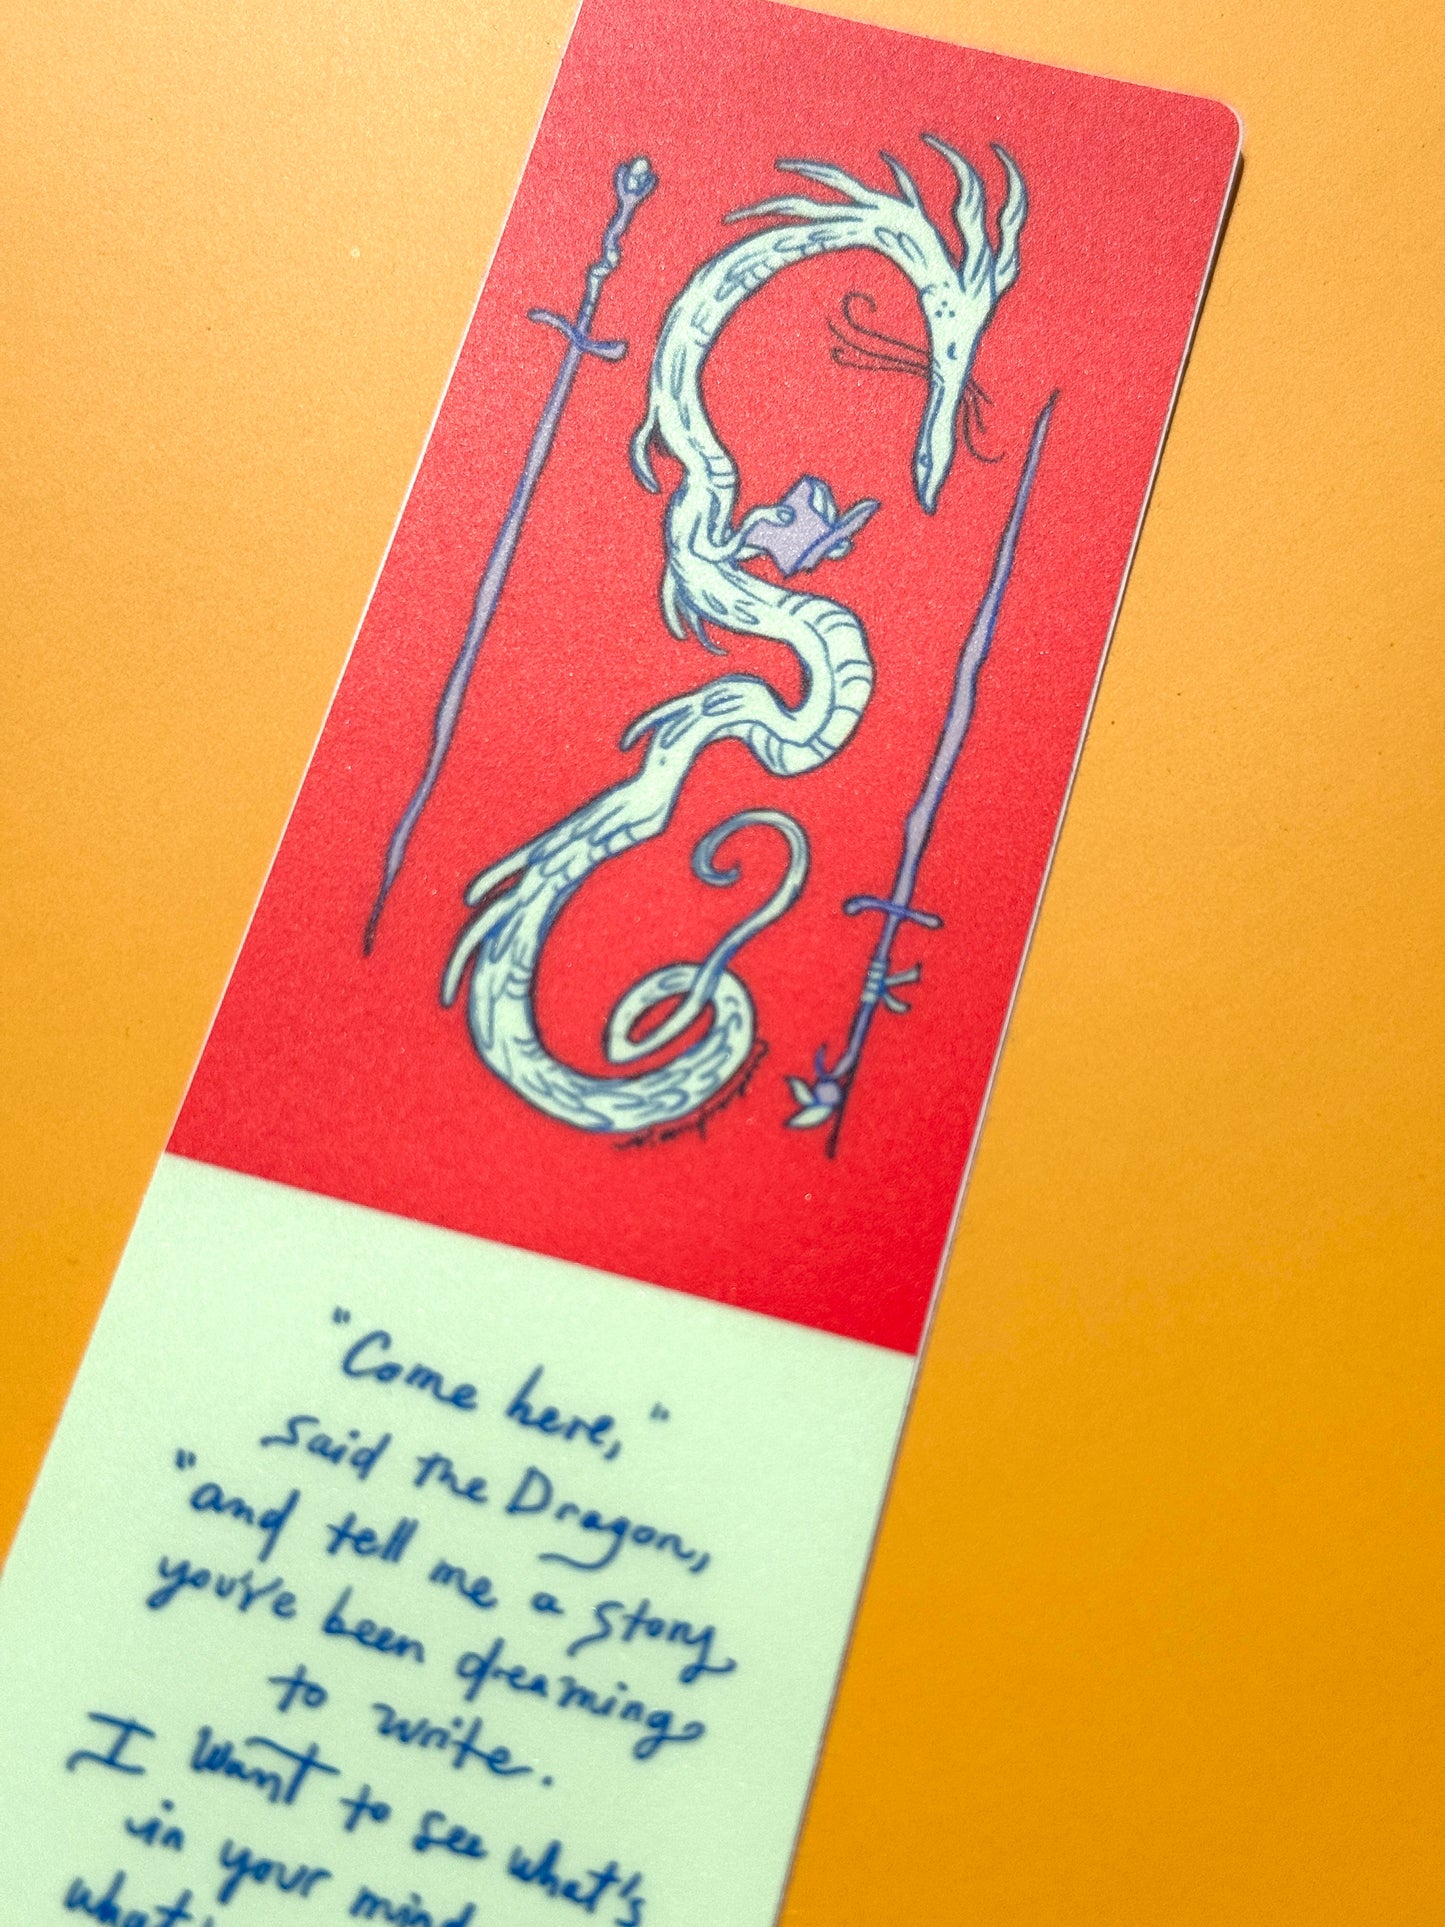 "Come here,"
said the Dragon,
"and tell me a story
you've been dreaming
to write.
I want to see what's
in your mind